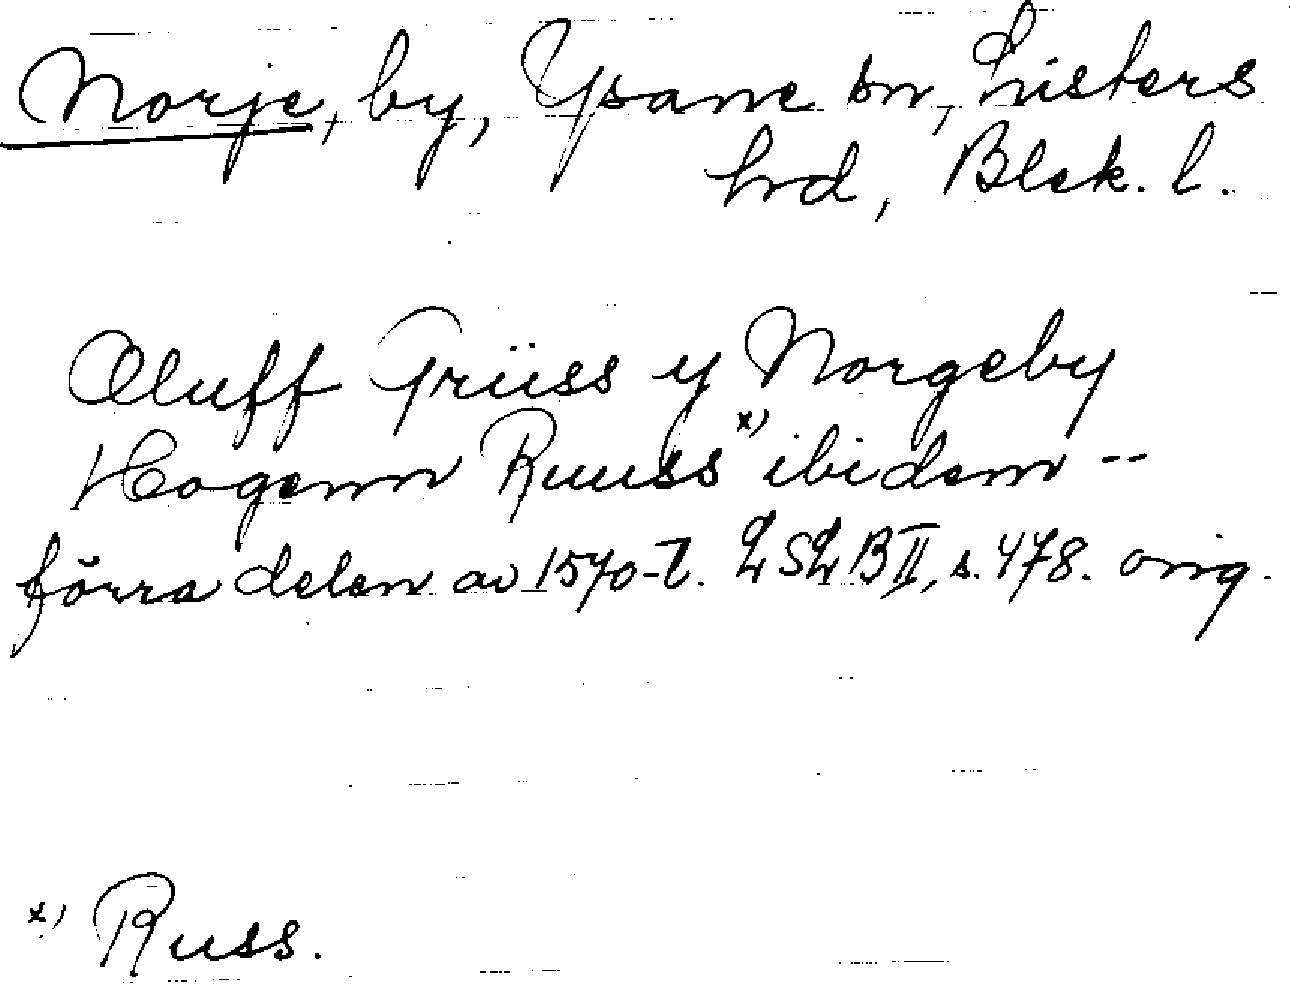 Norje, by, Ysane sn, Listers
hrd, Blek. l.
Oluff Trüss y Norgeby
Hogenn Ruuss x) ibidem --
förra delen av 1570-t. LSLB II, s. 478. orig.
x) Russ.